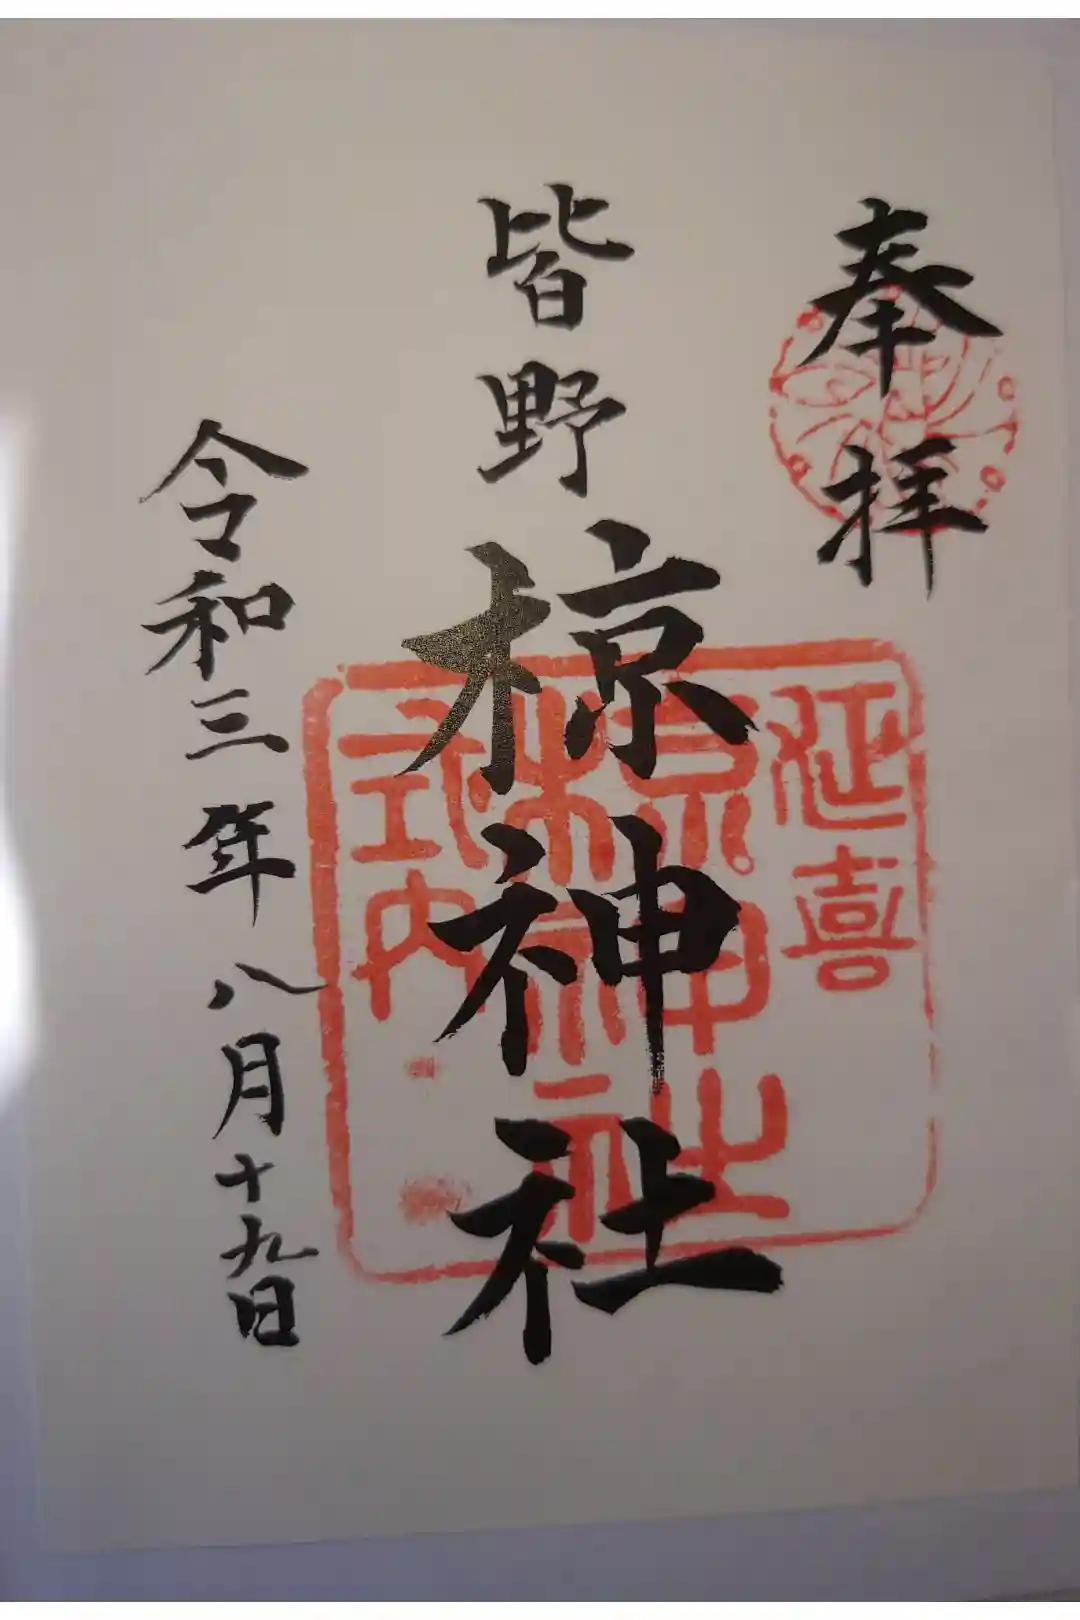 奉拝
皆野
椋神社
延喜
椋神社
式内
令和三年八月十九日